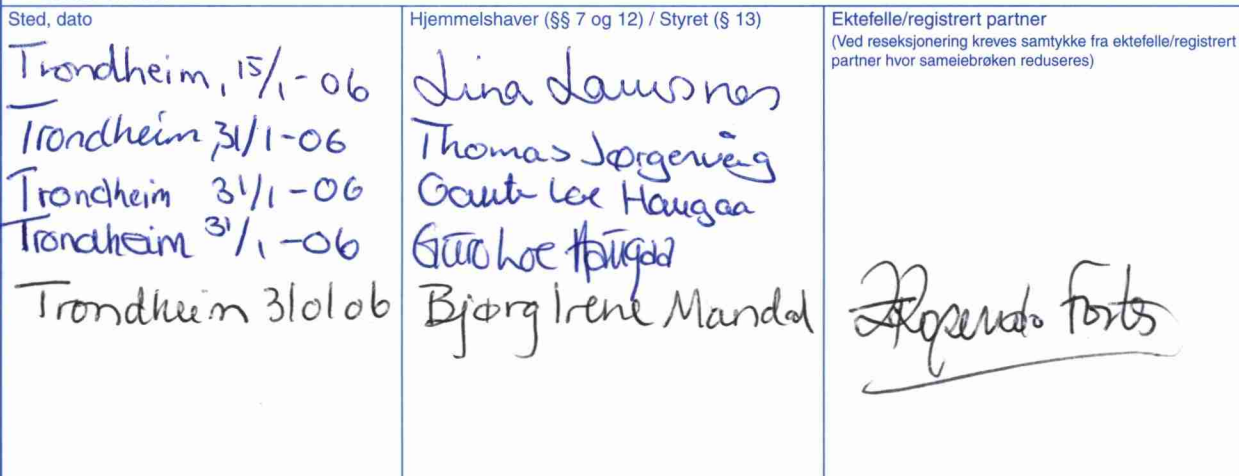 Sted, dato
Hjemmelshaver (§§ 7 og 12) / Styret (§ 13)
Ektefelle/registrert partner
(Ved reseksjonering kreves samtykke fra ektefelle/registrert
partner hvor sameiebrøken reduseres)
Trondheim, 15/1-06 Lina
Trondheim, 31/1-06 Thomas
Trondheim 31/1-06 Gaute Loe Haugaa
Trondheim 31/1-06 Guro Loe Haugaa
Trondheim 310106 Bjørg Irene Mandal